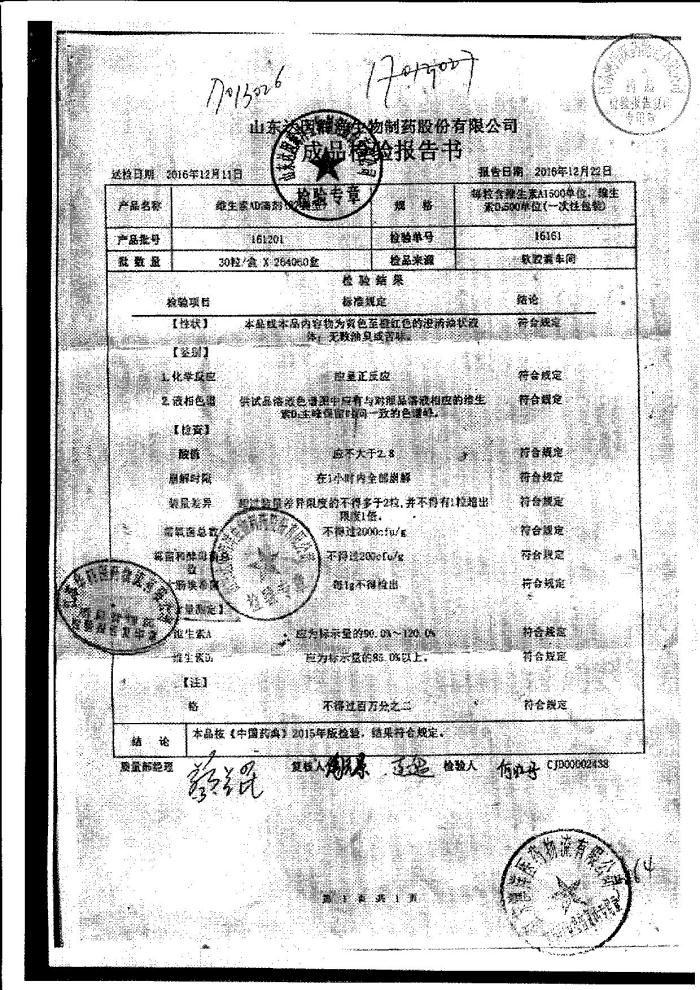 17013026
17012027
山东达因海洋生物制药股份有限公司
成品检验报告书
送检日期 2016年12月11日 报告日期 2016年12月22日
产品名称 维生素AD滴剂 规格 每粒含维生素A1500单位,维生素D₃500单位(一次性包装)
产品批号 161201 检验单号 16161
批数量 30粒/盒 X 264060盒 检品来源 软胶囊车间
检验结果
检验项目 标准规定 结论
【性状】 本品或本品内容物为黄色至橙红色的澄清油状液体;无败油臭或苦味。 符合规定
【鉴别】
1.化学反应 应呈正反应 符合规定
2.液相色谱 供试品溶液色谱图中应有与对照品溶液相应的维生素D₃主峰保留时间一致的色谱峰。 符合规定
【检查】
酸值 应不大于2.8 符合规定
崩解时限 在1小时内全部崩解 符合规定
装量差异 超过装量差异限度的不得多于2粒,并不得有1粒超出限度1倍。 符合规定
需氧菌总数 不得过2000cfu/g 符合规定
霉菌和酵母菌总数 不得过200cfu/g 符合规定
大肠埃希菌 每1g不得检出 符合规定
【含量测定】
维生素A 应为标示量的90.0%~120.0% 符合规定
维生素D₃ 应为标示量的85.0%以上。 符合规定
【注】
铬 不得过百万分之二 符合规定
结论 本品按《中国药典》2015年版检验,结果符合规定。
质量部经理 复核人 检验人 CJD00002438
检验专章
检验专章
第 1 页 共 1 页